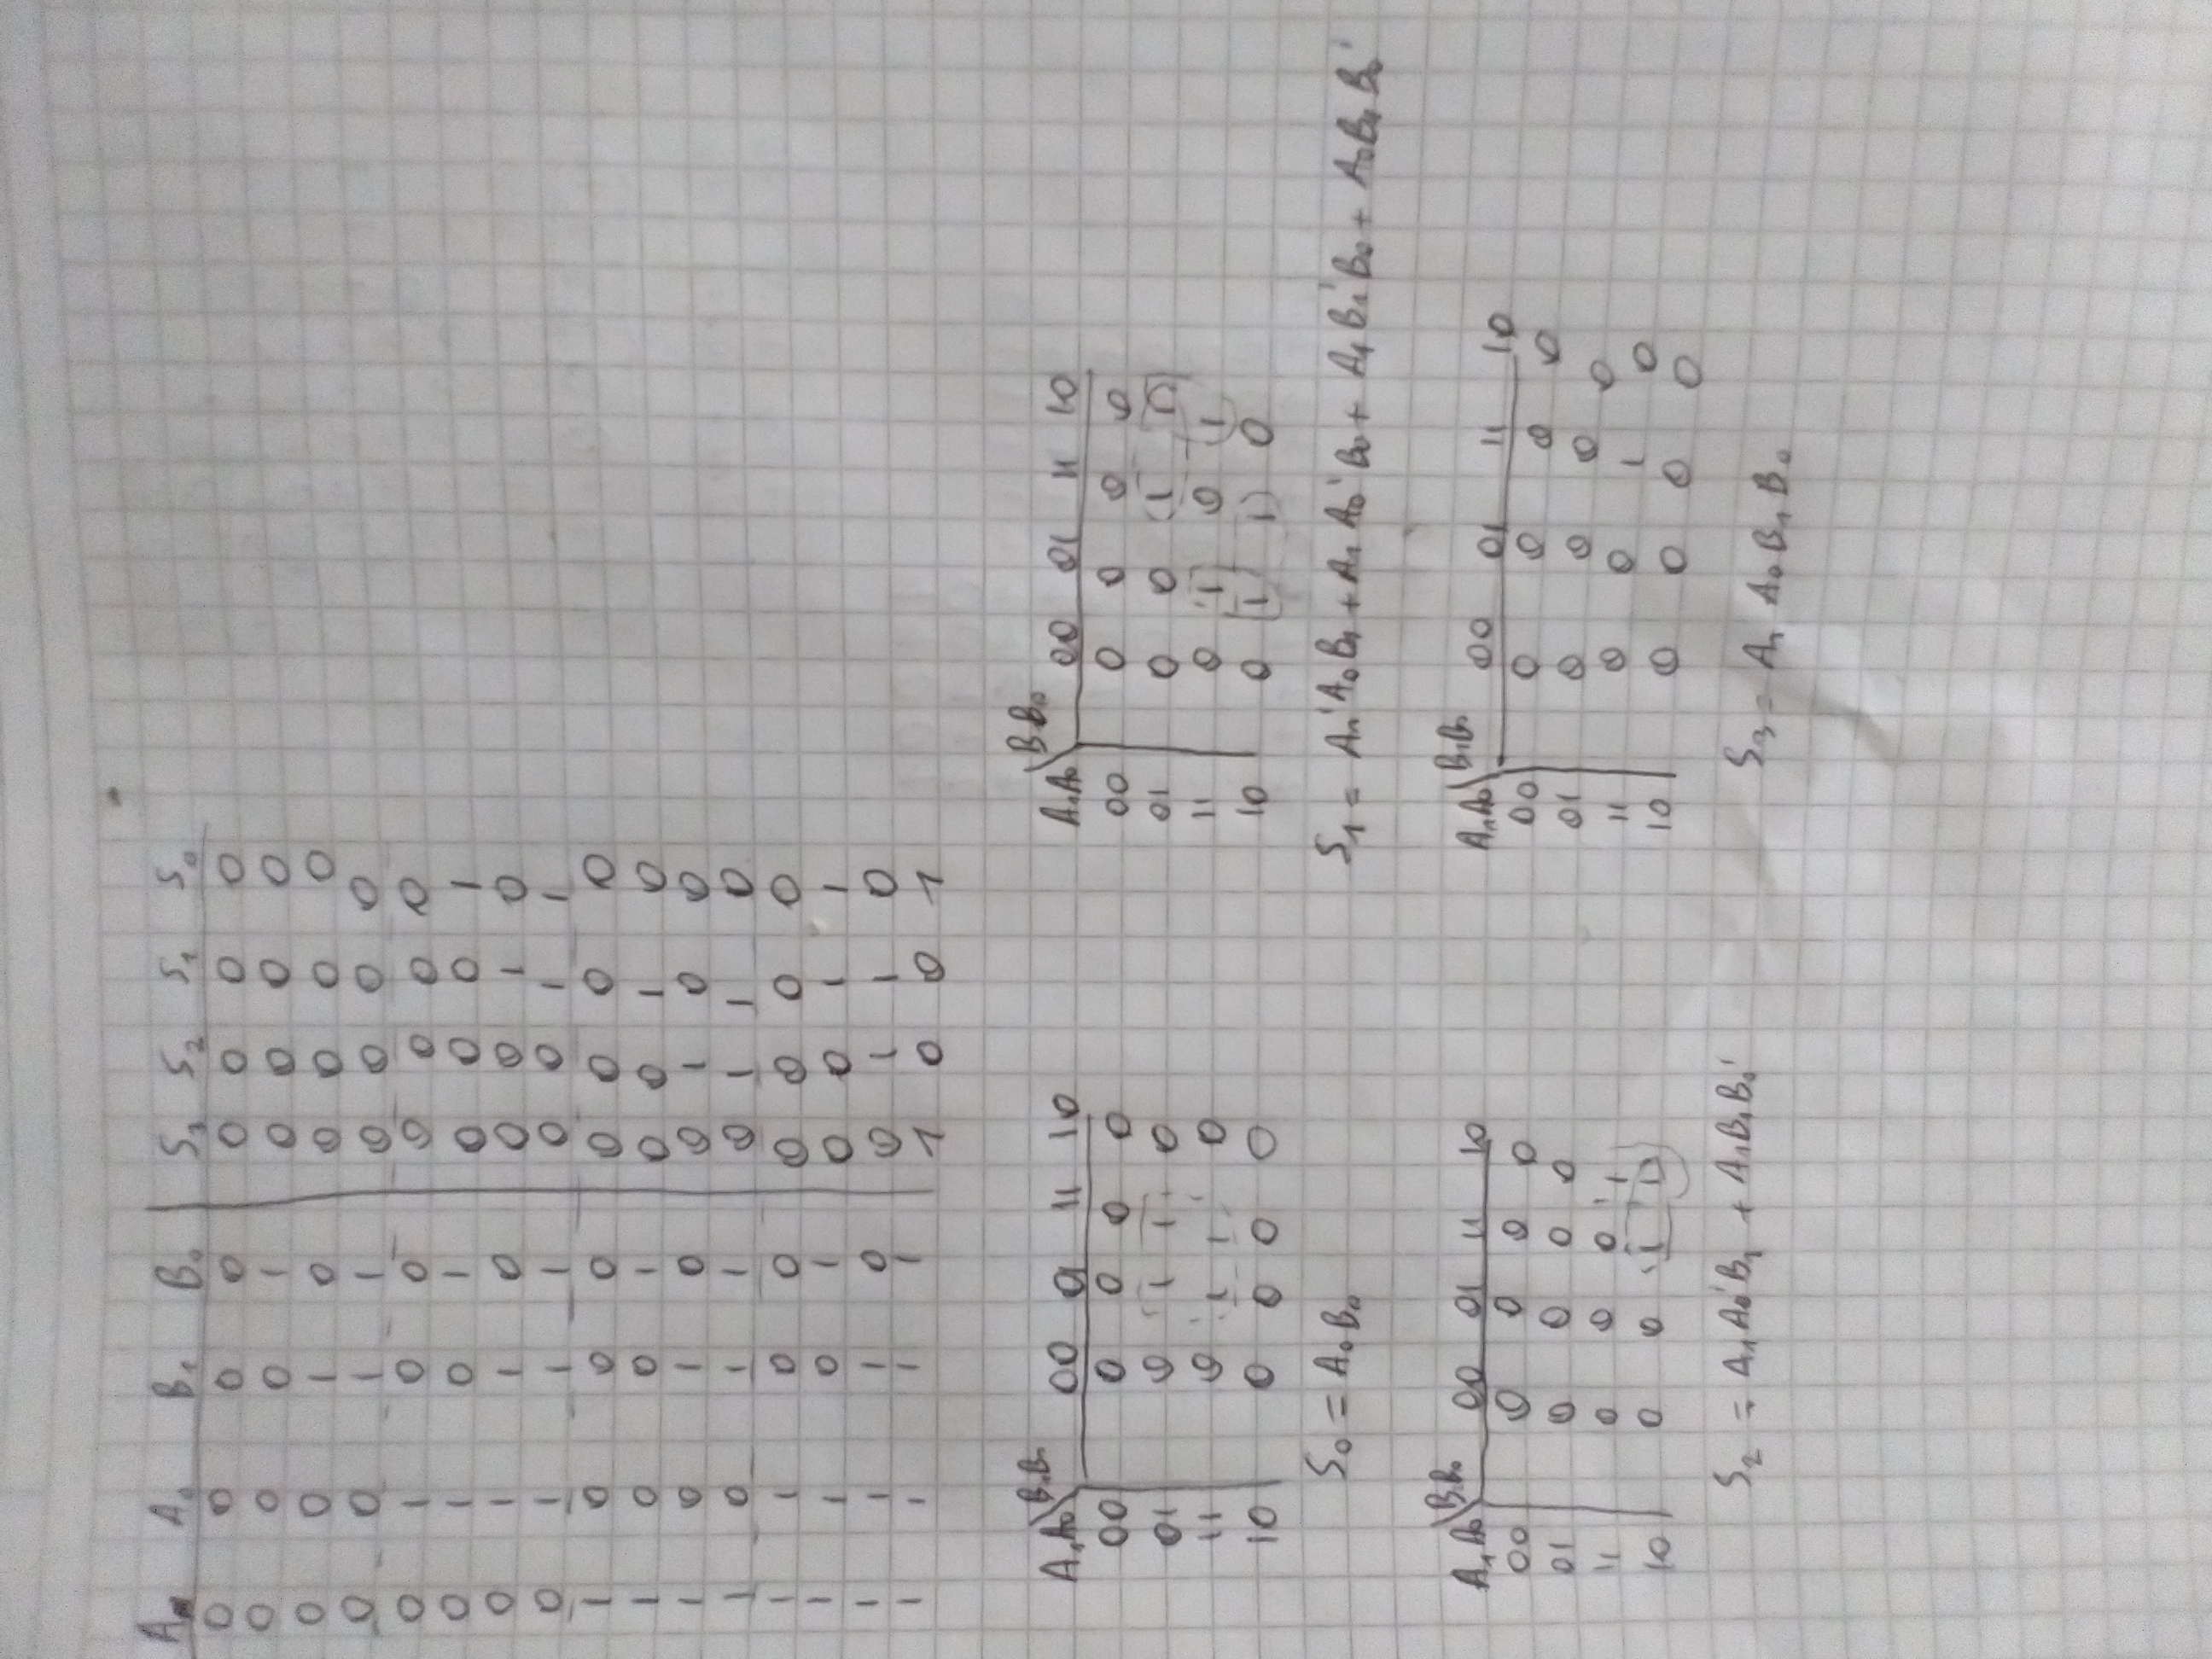 A₁ A₀ B₁ B₀ S₃ S₂ S₁ S₀
0 0 0 0 0 0 0 0
0 0 0 1 0 0 0 0
0 0 1 0 0 0 0 0
0 0 1 1 0 0 0 0
0 1 0 0 0 0 0 0
0 1 0 1 0 0 0 1
0 1 1 0 0 0 1 0
0 1 1 1 0 0 1 1
1 0 0 0 0 0 0 0
1 0 0 1 0 0 1 0
1 0 1 0 0 1 0 0
1 0 1 1 0 1 1 0
1 1 0 0 0 0 0 0
1 1 0 1 0 0 1 1
1 1 1 0 0 1 1 0
1 1 1 1 1 0 0 1
A₁A₀\B₁B₀ 00 01 11 10
00 0 0 0 0
01 0 1 1 0
11 0 1 1 0
10 0 0 0 0
S₀ = A₀B₀
A₁A₀\B₁B₀ 00 01 11 10
00 0 0 0 0
01 0 0 1 1
11 0 1 0 1
10 0 1 1 0
S₁ = A₁'A₀B₁ + A₁A₀'B₀ + A₁B₁'B₀ + A₀B₁B₀'
A₁A₀\B₁B₀ 00 01 11 10
00 0 0 0 0
01 0 0 0 0
11 0 0 0 1
10 0 0 1 1
S₂ = A₁A₀'B₁ + A₁B₁B₀'
A₁A₀\B₁B₀ 00 01 11 10
00 0 0 0 0
01 0 0 0 0
11 0 0 1 0
10 0 0 0 0
S₃ = A₁A₀B₁B₀